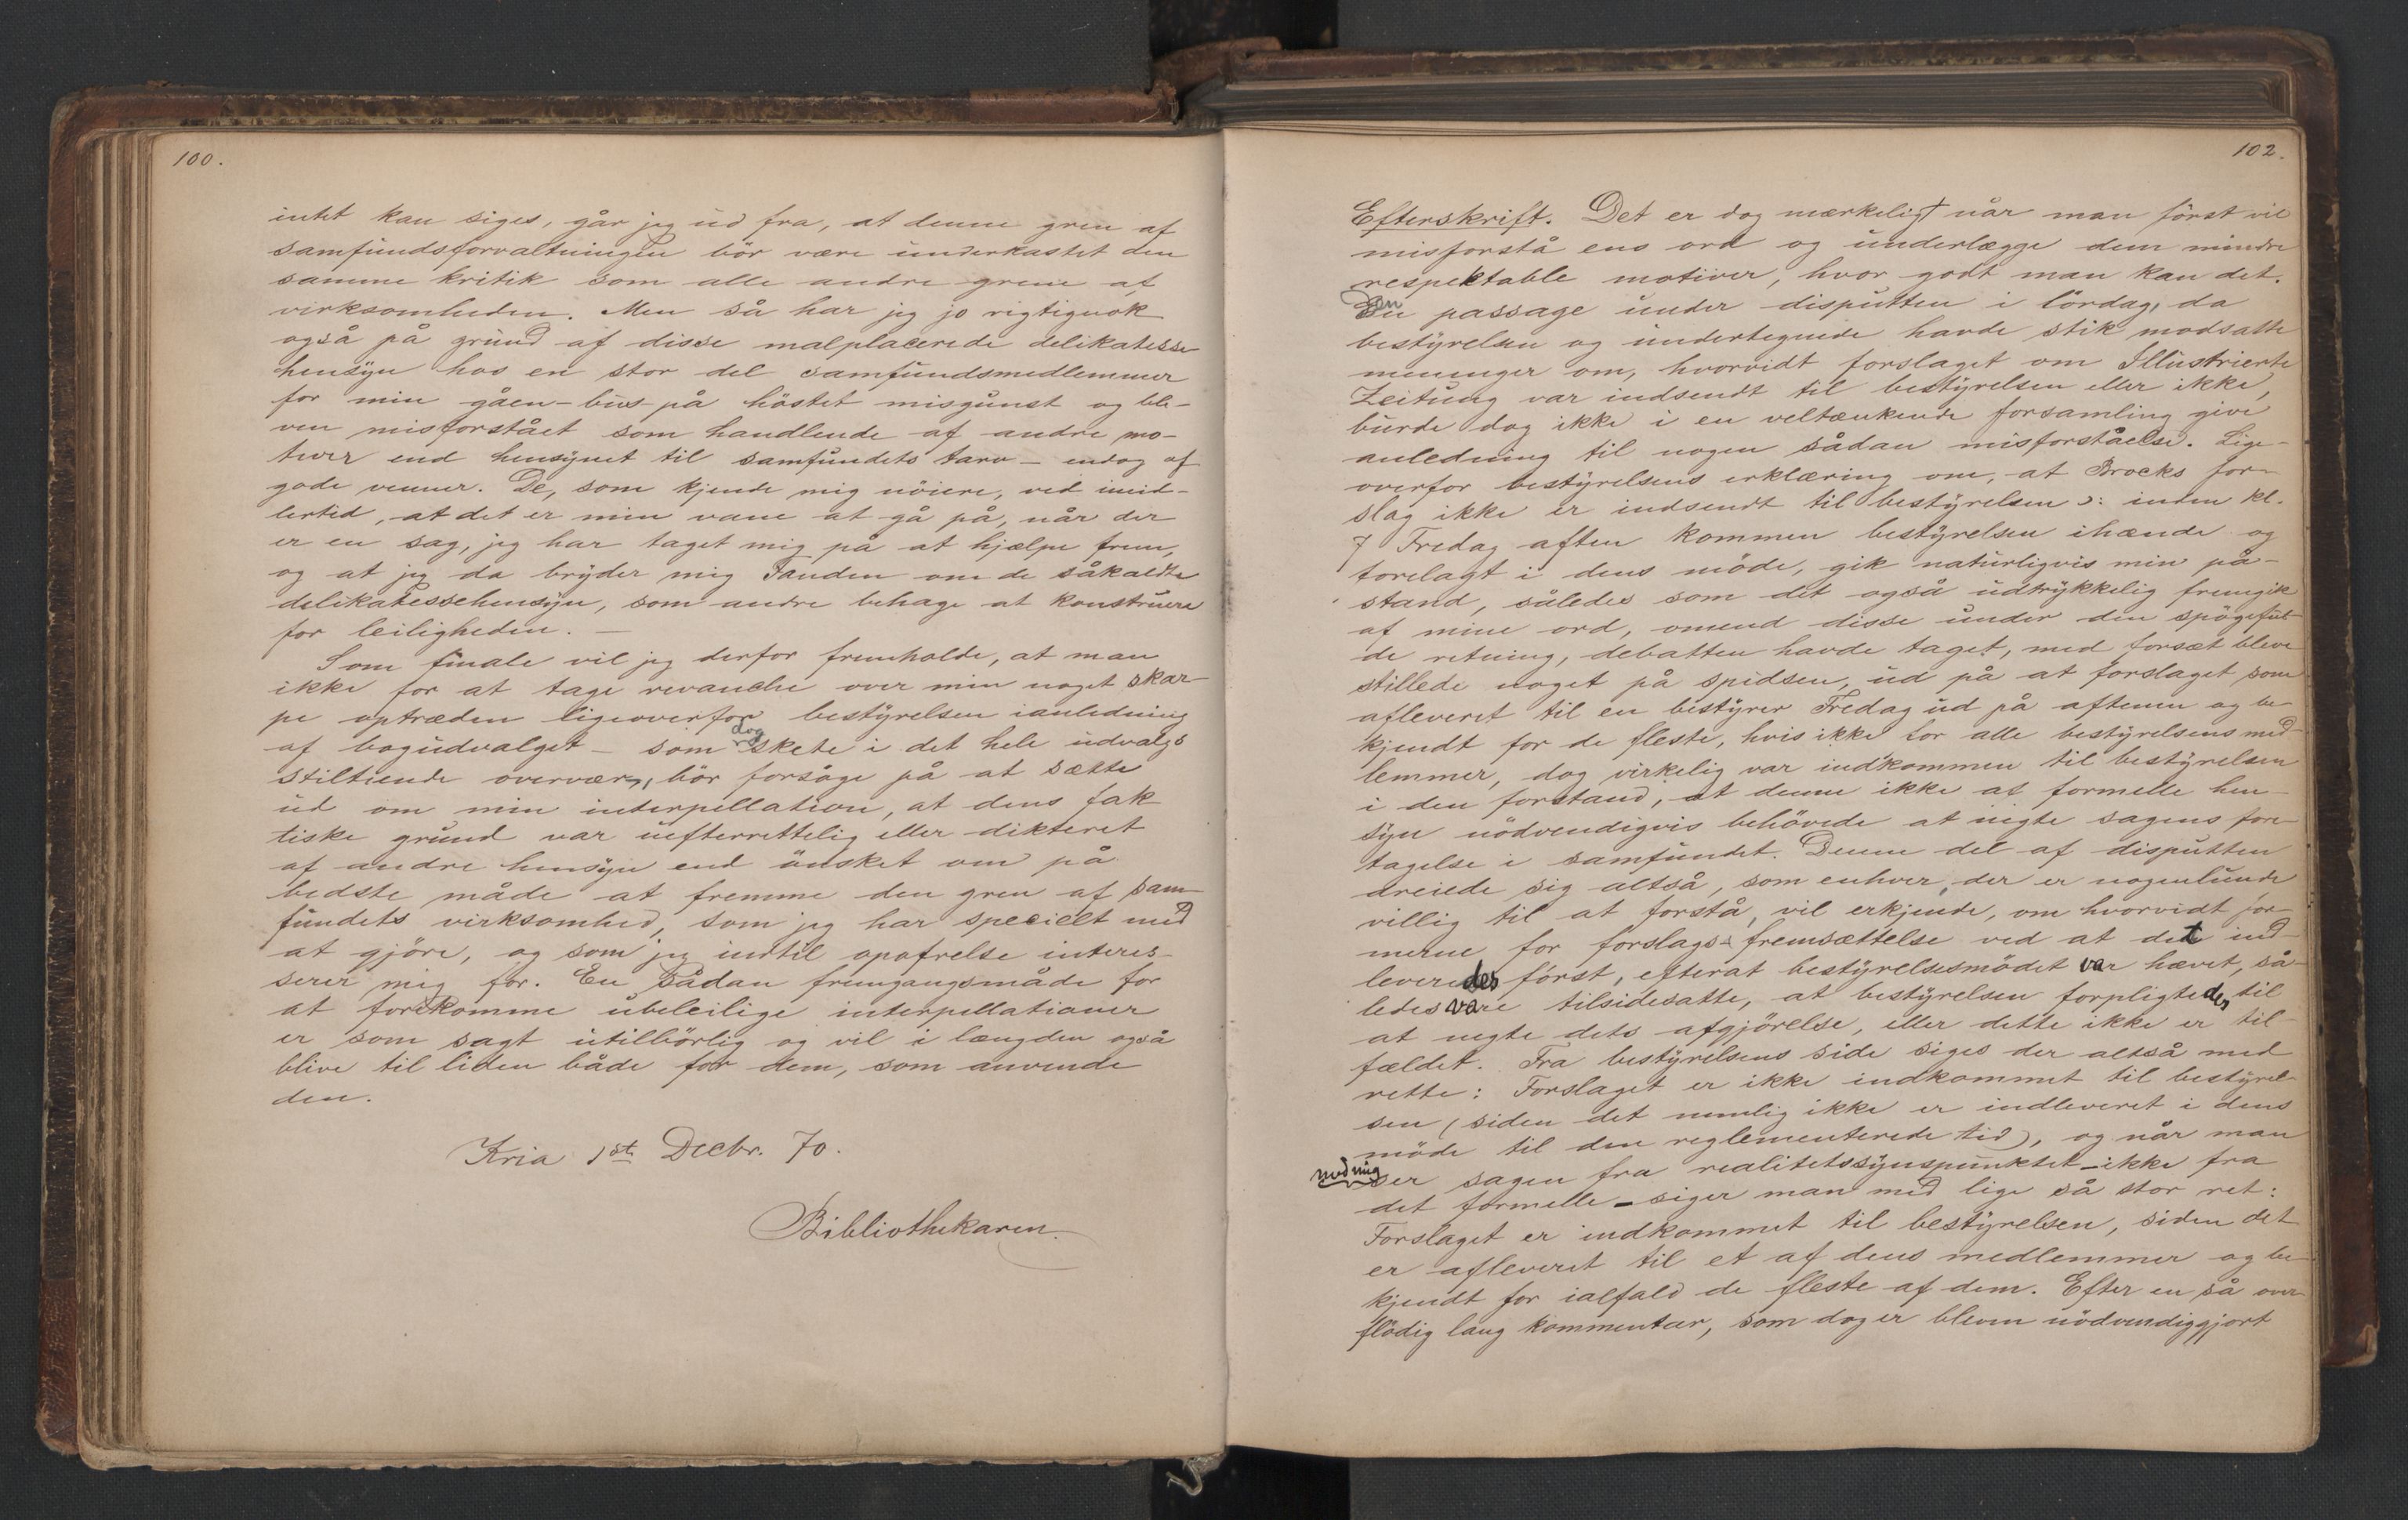 100.
intet kan siges, går jeg ud fra, at denne gren af
samfundsforvaltningen bör være underkastet den
samme kritik som alle andre grene af
virksomheden. Men så har jeg jo rigtignok
også på grund af disse malplacerede delikatesse
hensyn hos en stor del samfundsmedlemmer
for min gåen-bus-på höstet misgunst og ble-
ven misforstået som handlende af andre mo-
tiver end hensynet til samfundets tarv – endog af
gode venner. De, som kjende mig nöiere, ved imid-
lertid, at det er min vane at gå på, når der
er en sag, jeg har taget mig på at hjælpe frem,
og at jeg da bryder mig Fanden om de såkaldte
delikatessehensyn, som andre behage at konstruere
for leiligheden. –
Som finale vil jeg derfor fremholde, at man
ikke for at tage revanche over min noget skar-
pe optræden ligeoverfor bestyrelsen ianledning
af bogudvalget – som dog skete i det hele udvalgs
stiltiende overvær, bör forsöge på at sætte
ud om min interpellation, at dens fak
tiske grund var uefterrettelig eller dikteret
af andre hensyn end önsket om på
bedste måde at fremme den gren af sam-
fundets virksomhed, som jeg har specielt med
at gjöre, og som jeg indtil opofrelse interes-
serer mig for. En sådan fremgangsmåde for
at forekomme ubeleilige interpellationer
er som sagt utilbörlig og vil i længden også
blive til liden både for dem, som anvende
den.
Kria 1st Decbr. 70.
Bibliothekaren.
102.
Efterskrift. Det er dog mærkeligt når man först vil
misforstå ens ord og underlægge dem mindre
respektable motiver, hvor godt man kan det.
Den passage under disputten i lördag, da
bestyrelsen og undertegnede havde stik modsatte
meninger om, hvorvidt forslaget om Illustrierte
Zeitung var indsendt til bestyrelsen eller ikke,
burde dog ikke i en veltænkende forsamling give
anledning til nogen sådan misforståelse. Lige-
overfor bestyrelsens erklæring om, at Brocks for-
slag ikke er indsendt til bestyrelsen ɔ: inden kl.
7 Fredag aften kommen bestyrelsen ihænde og
forelagt i dens möde, gik naturligvis min på-
stand, således som det også udtrykkelig fremgik
af mine ord, omend disse under den spögeful-
de retning, debatten havde taget, med forsæt bleve
stillede noget på spidsen, ud på at forslaget som
afleveret til en bestyrer Fredag ud på aftenen og be-
kjendt for de fleste, hvis ikke for alle bestyrelsens med-
lemmer, dog virkelig var indkommen til bestyrelsen
i den forstand, at denne ikke af formelle hen-
syn nödvendigvis behövede at nigte sagens fore-
tagelse i samfundet. Denne del af disputten
dreiede sig altså, som enhver, der er nogenlunde
villig til at forstå, vil erkjende, om hvorvidt for-
merne for forslags-fremsættelse ved at det ind-
leveredes först, efterat bestyrelsesmödet var hævet, så-
ledes vare tilsidesatte, at bestyrelsen forpligtedes til
at negte dets afgjörelse, eller dette ikke er til-
fældet. Fra bestyrelsens side siges der altså med
rette: Forslaget er ikke indkommet til bestyrel-
sen (siden det nemlig ikke er indleveret i dens
möde til den reglementerede tid), og når man
med mig ser sagen fra realitetssynspunktet – ikke fra
det formelle – siger man med lige så stor ret:
Forslaget er indkommet til bestyrelsen, siden det
er afleveret til et af dens medlemmer og be-
kjendt for ialfald de fleste af dem. Efter en så over-
flödig lang kommentar, som dog er bleven nödvendiggjort